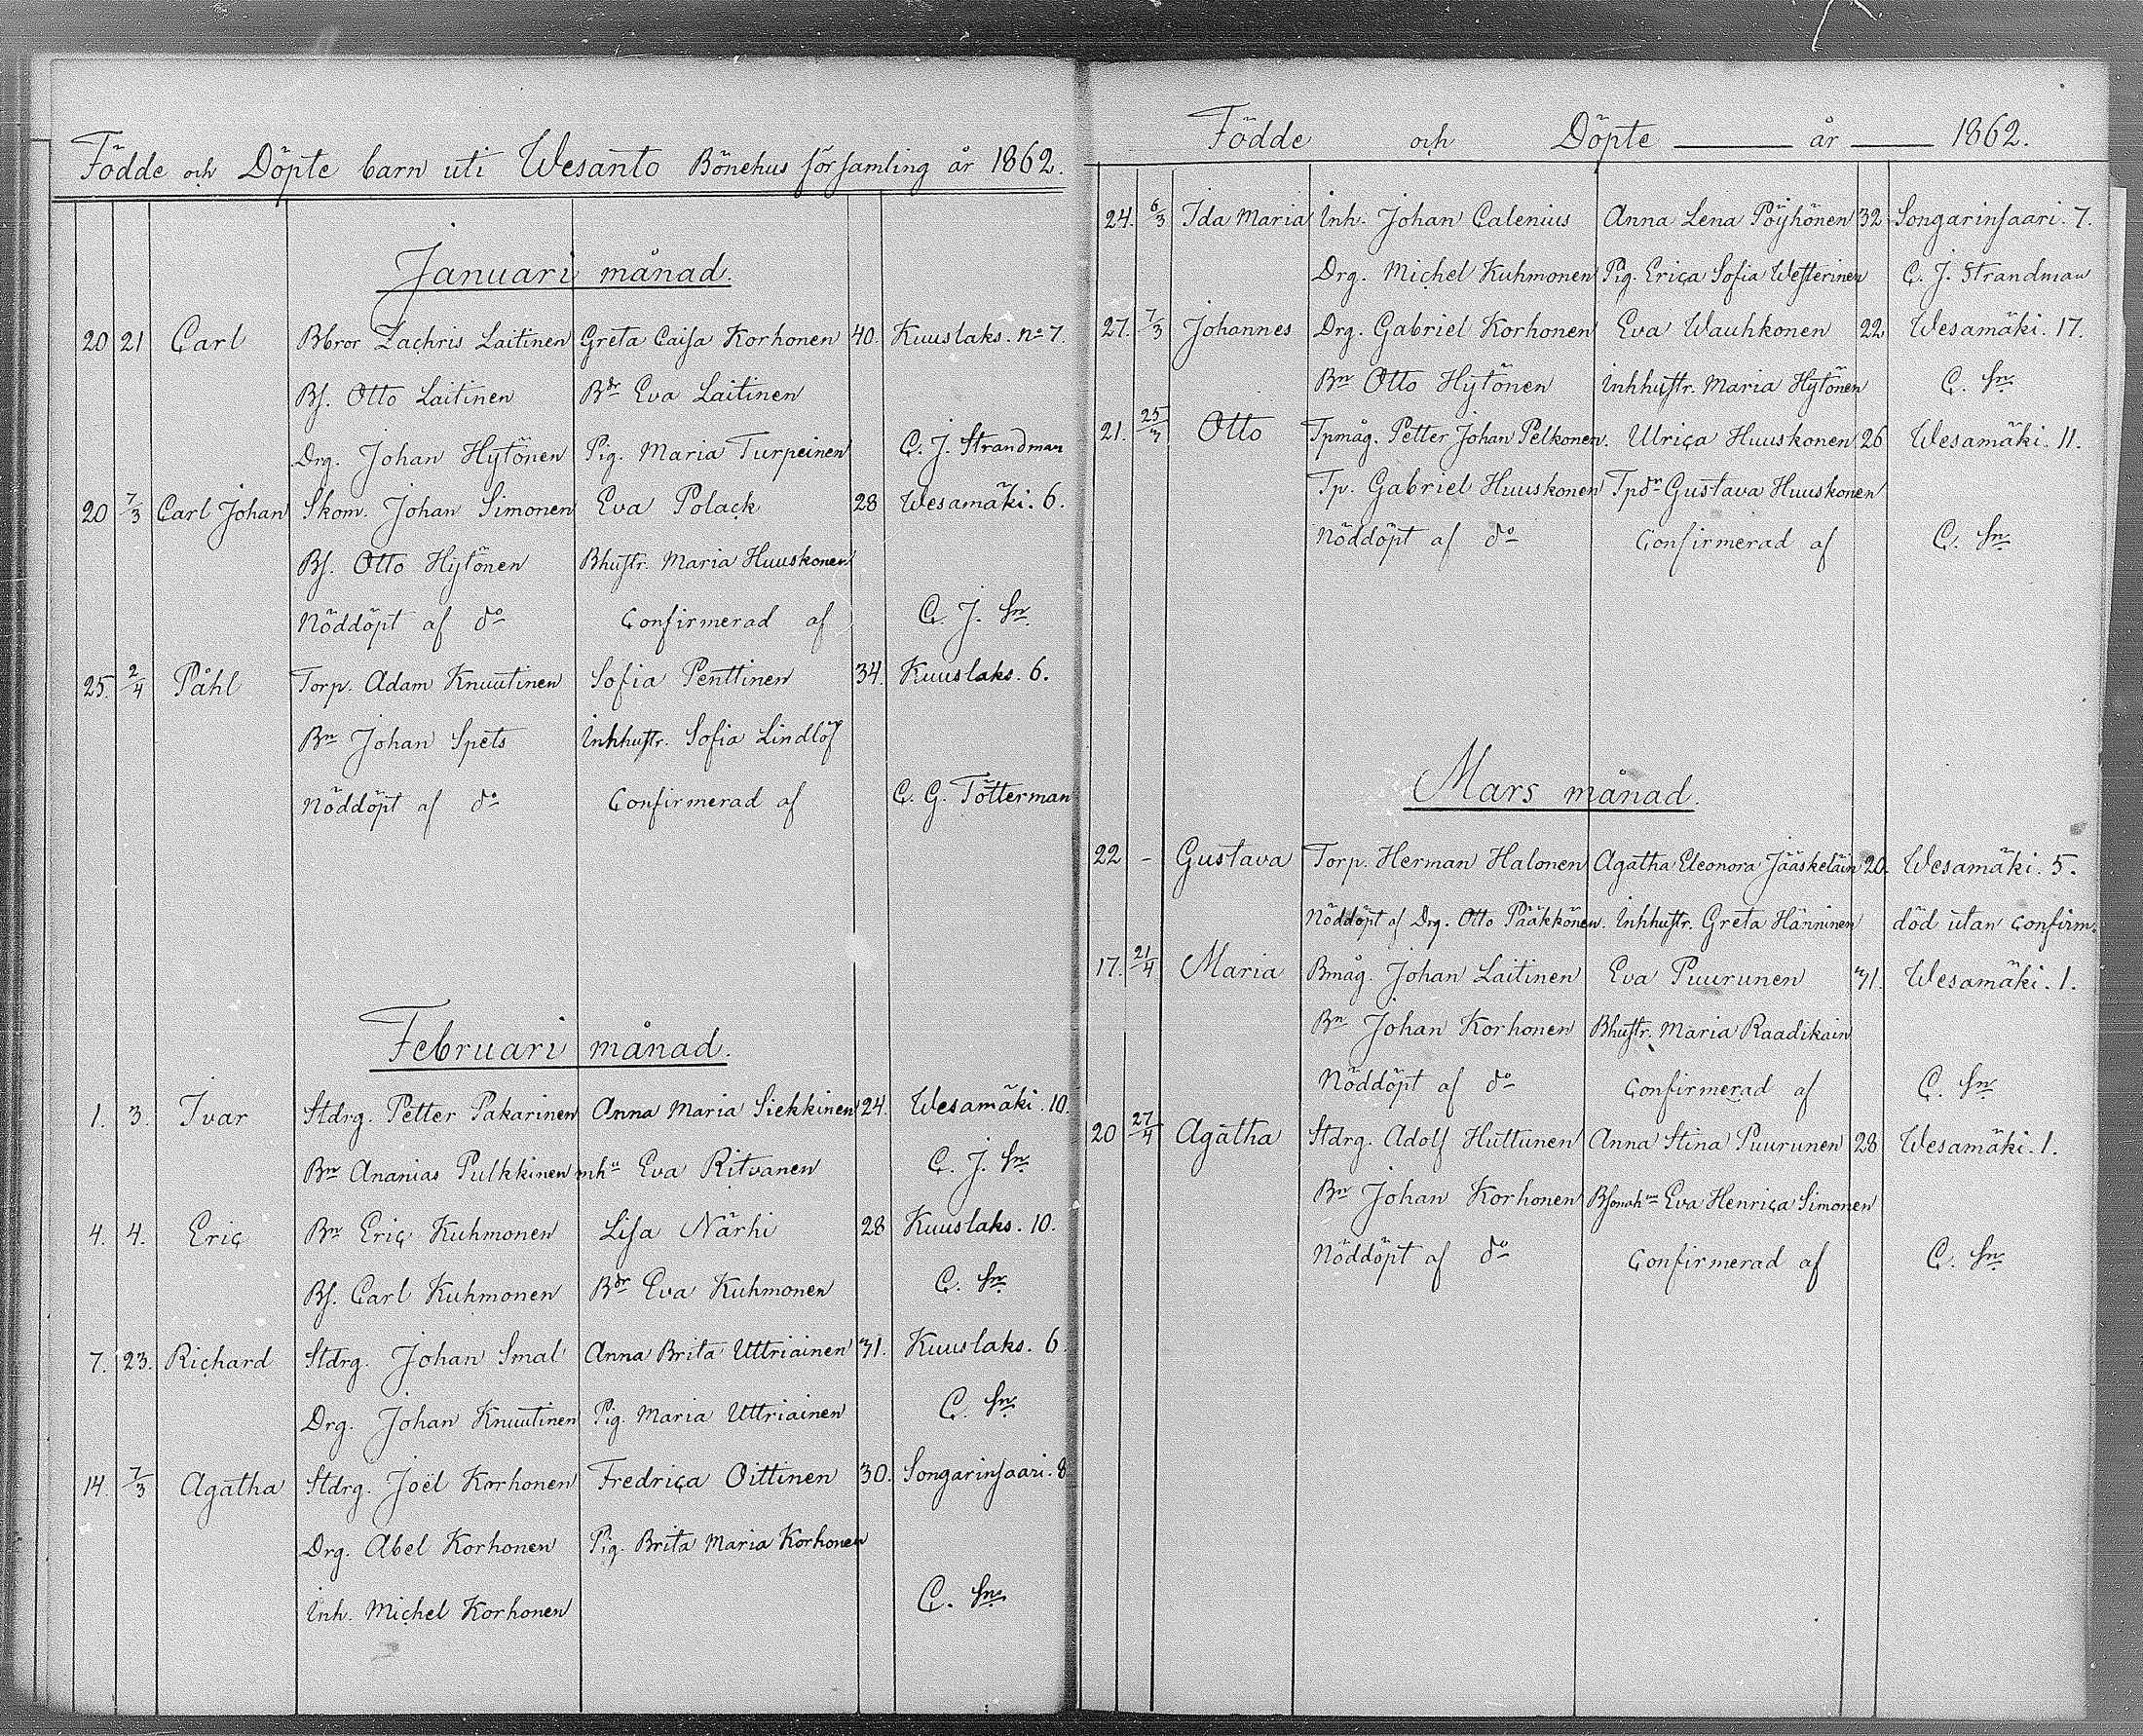 Födde och Döpte barn uti Wesanto Bönehus församling år 1862.
Januari månad.
20 21 Carl Bbror Zachris Laitinen Greta Caisa Korhonen 40. Kuuslaks. No 7.
Bs. Otto Laitinen Bdr Eva Laitinen
Drg. Johan Hytönen Pig. Maria Turpeinen C. J. Strandman
20 7/3 Carl Johan Skom. Johan Simonen Eva Polack 28 Wesamäki. 6.
Bs. Otto Hytönen Bhustr. Maria Huuskonen
Nöddöpt af do Confirmerad af C. J. Sn.
25. 2/4 Påhl Torp. Adam Knuutinen Sofia Penttinen 34. Kuuslaks. 6.
Bn Johan Spets Inhhustr. Sofia Lindlöf
Nöddöpt af do Confirmerad af C. G. Tötterman
Februari månad.
1. 3. Ivar Stdrg. Petter Pakarinen Anna Maria Siekkinen 24. Wesamäki. 10.
Bn Ananias Pulkkinen Eva Ritvanen C. J. Sn
4. 4. Eric Bn Eric Kuhmonen Lisa Närhi 28 Kuuslaks. 10.
Bs. Carl Kuhmonen Bdr Eva Kuhmonen C. Sn.
7. 23. Richard Stdrg. Johan Smal Anna Brita Uttriainen 31. Kuuslaks. 6.
Drg. Johan Knuutinen Pig. Maria Uttriainen C. Sn.
14. 7/3 Agatha Stdrg. Joël Korhonen Fredrica Oittinen 30. Songarinsaari. 8
Drg. Abel Korhonen Pig. Brita Maria Korhonen
Inh. Michel Korhonen C. Sn.
Födde och Döpte år 1862.
24. 6/3 Ida Maria Inh. Johan Calenius Anna Lena Pöyhönen 32 Songarinsaari. 7.
Drg. Michel Kuhmonen Pig. Erica Sofia Westerinen C. J. Strandman
27. 7/3 Johannes Drg. Gabriel Korhonen Eva Wauhkonen 22 Wesamäki. 17.
Bn Otto Hytönen Inhhustr. Maria Hytönen C. Sn.
21. 25/3 Otto Tpmåg. Petter Johan Pelkonen. Ulrica Huuskonen 26 Wesamäki. 11.
Tp. Gabriel Huuskonen Tpdr Gustava Huuskonen
Nöddöpt af do Confirmerad af C. Sn.
Mars månad.
22 - Gustava Torp. Herman Halonen Agatha Eleonora Jääskeläin 20. Wesamäki. 5.
Nöddöpt af Drg. Otto Pääkkönen. Inhhustr. Greta Hänninen död utan Confirm.
17. 21/4 Maria Bmåg. Johan Laitinen Eva Puurunen 31. Wesamäki. 1.
Bn Johan Korhonen Bhustr. Maria Raadikain
Nöddöpt af do Confirmerad af C. Sn
20 27/4 Agatha Stdrg. Adolf Huttunen Anna Stina Puurunen 28 Wesamäki. 1.
Bn Johan Korhonen Eva Henrica Simonen
Nöddöpt af do Confirmerad af C. Sn.